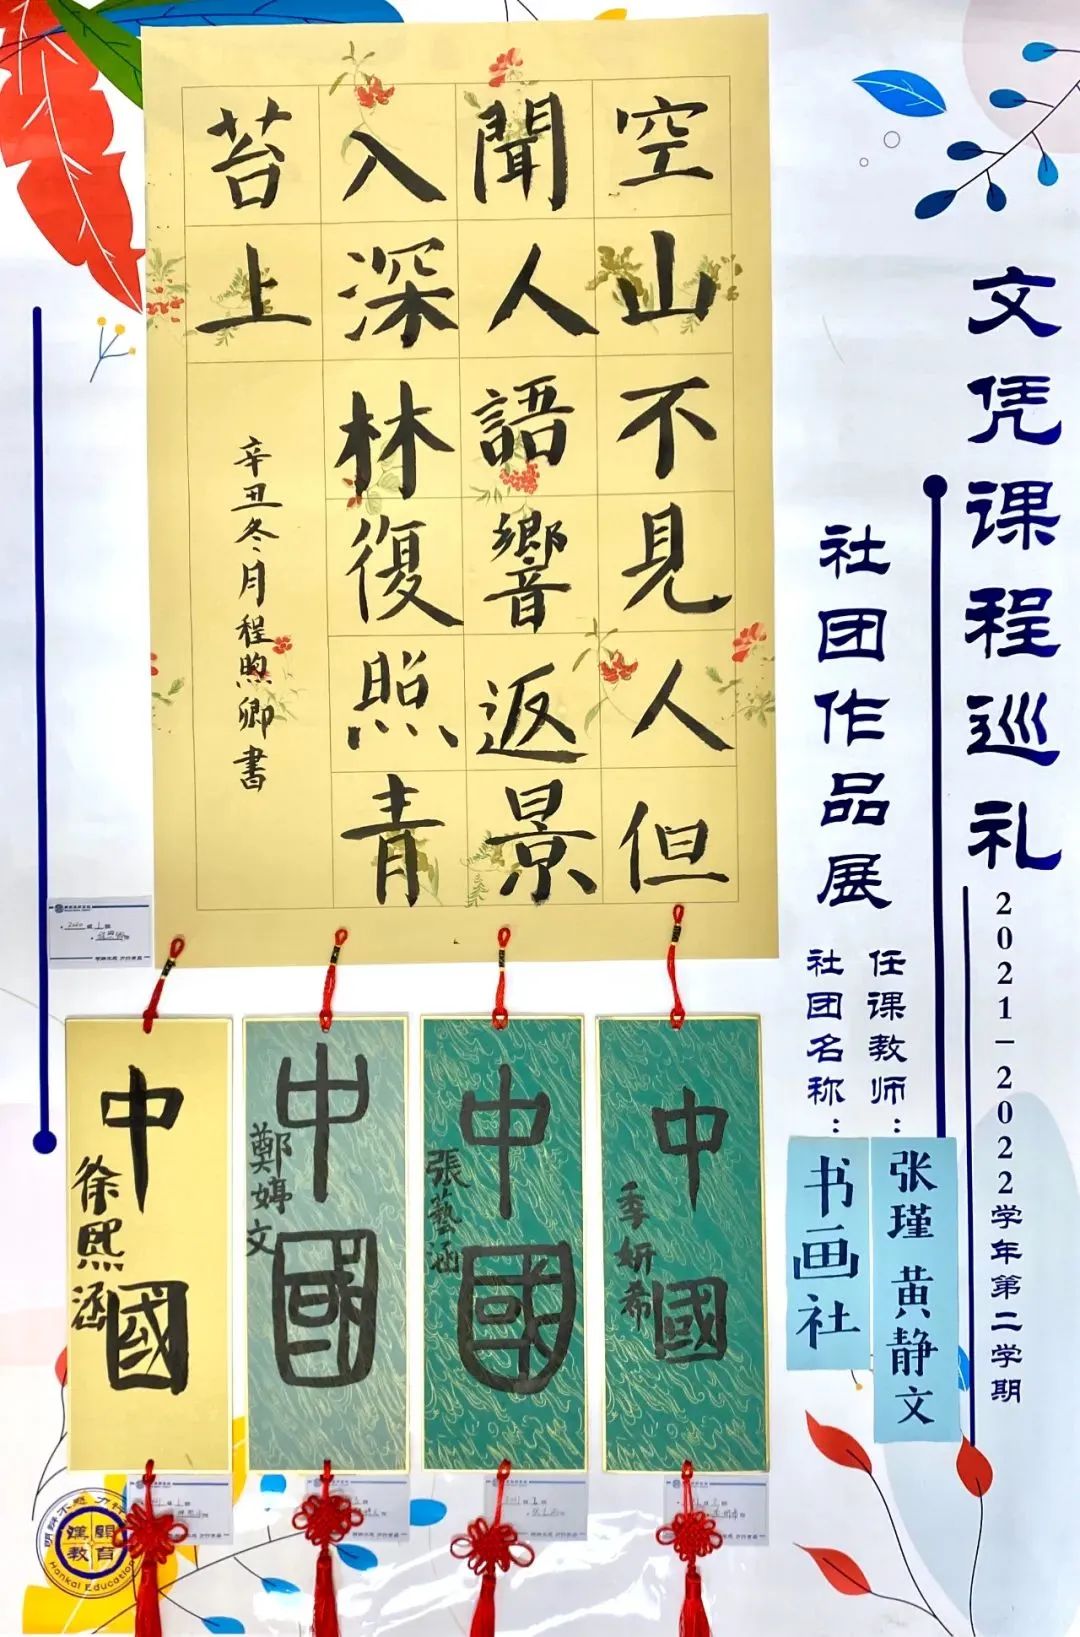 文凭课程巡礼
2021-2022学年第二学期
社团作品展
任课教师：
张瑾 黄静文
社团名称：
书画社
空山不见人但
聞人語響返景
入深林復照青
苔上
辛丑冬月程煦卿書
中國
季妍希
中國
張藝涵
中國
鄭婷文
中國
徐熙涵
漢開教育
Hankai Education